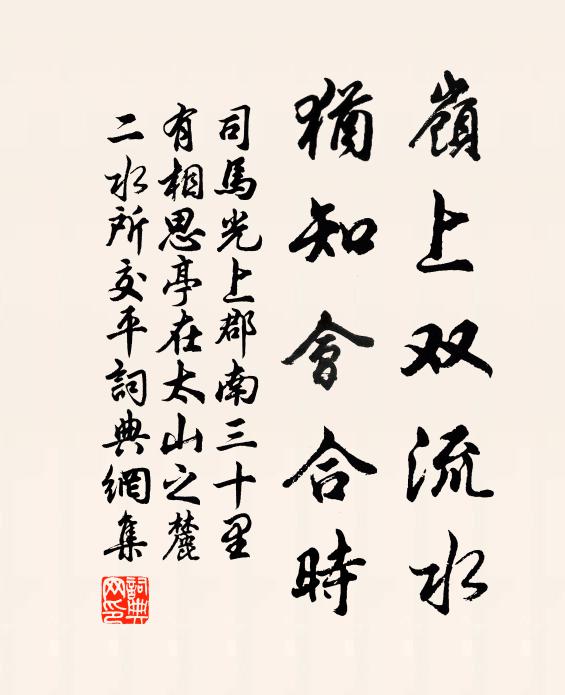 嶺上双流水
猶知會合時
司馬光上郡南三十里
有相思亭在太山之麓
二水所交平詞典網集
詞典
网印